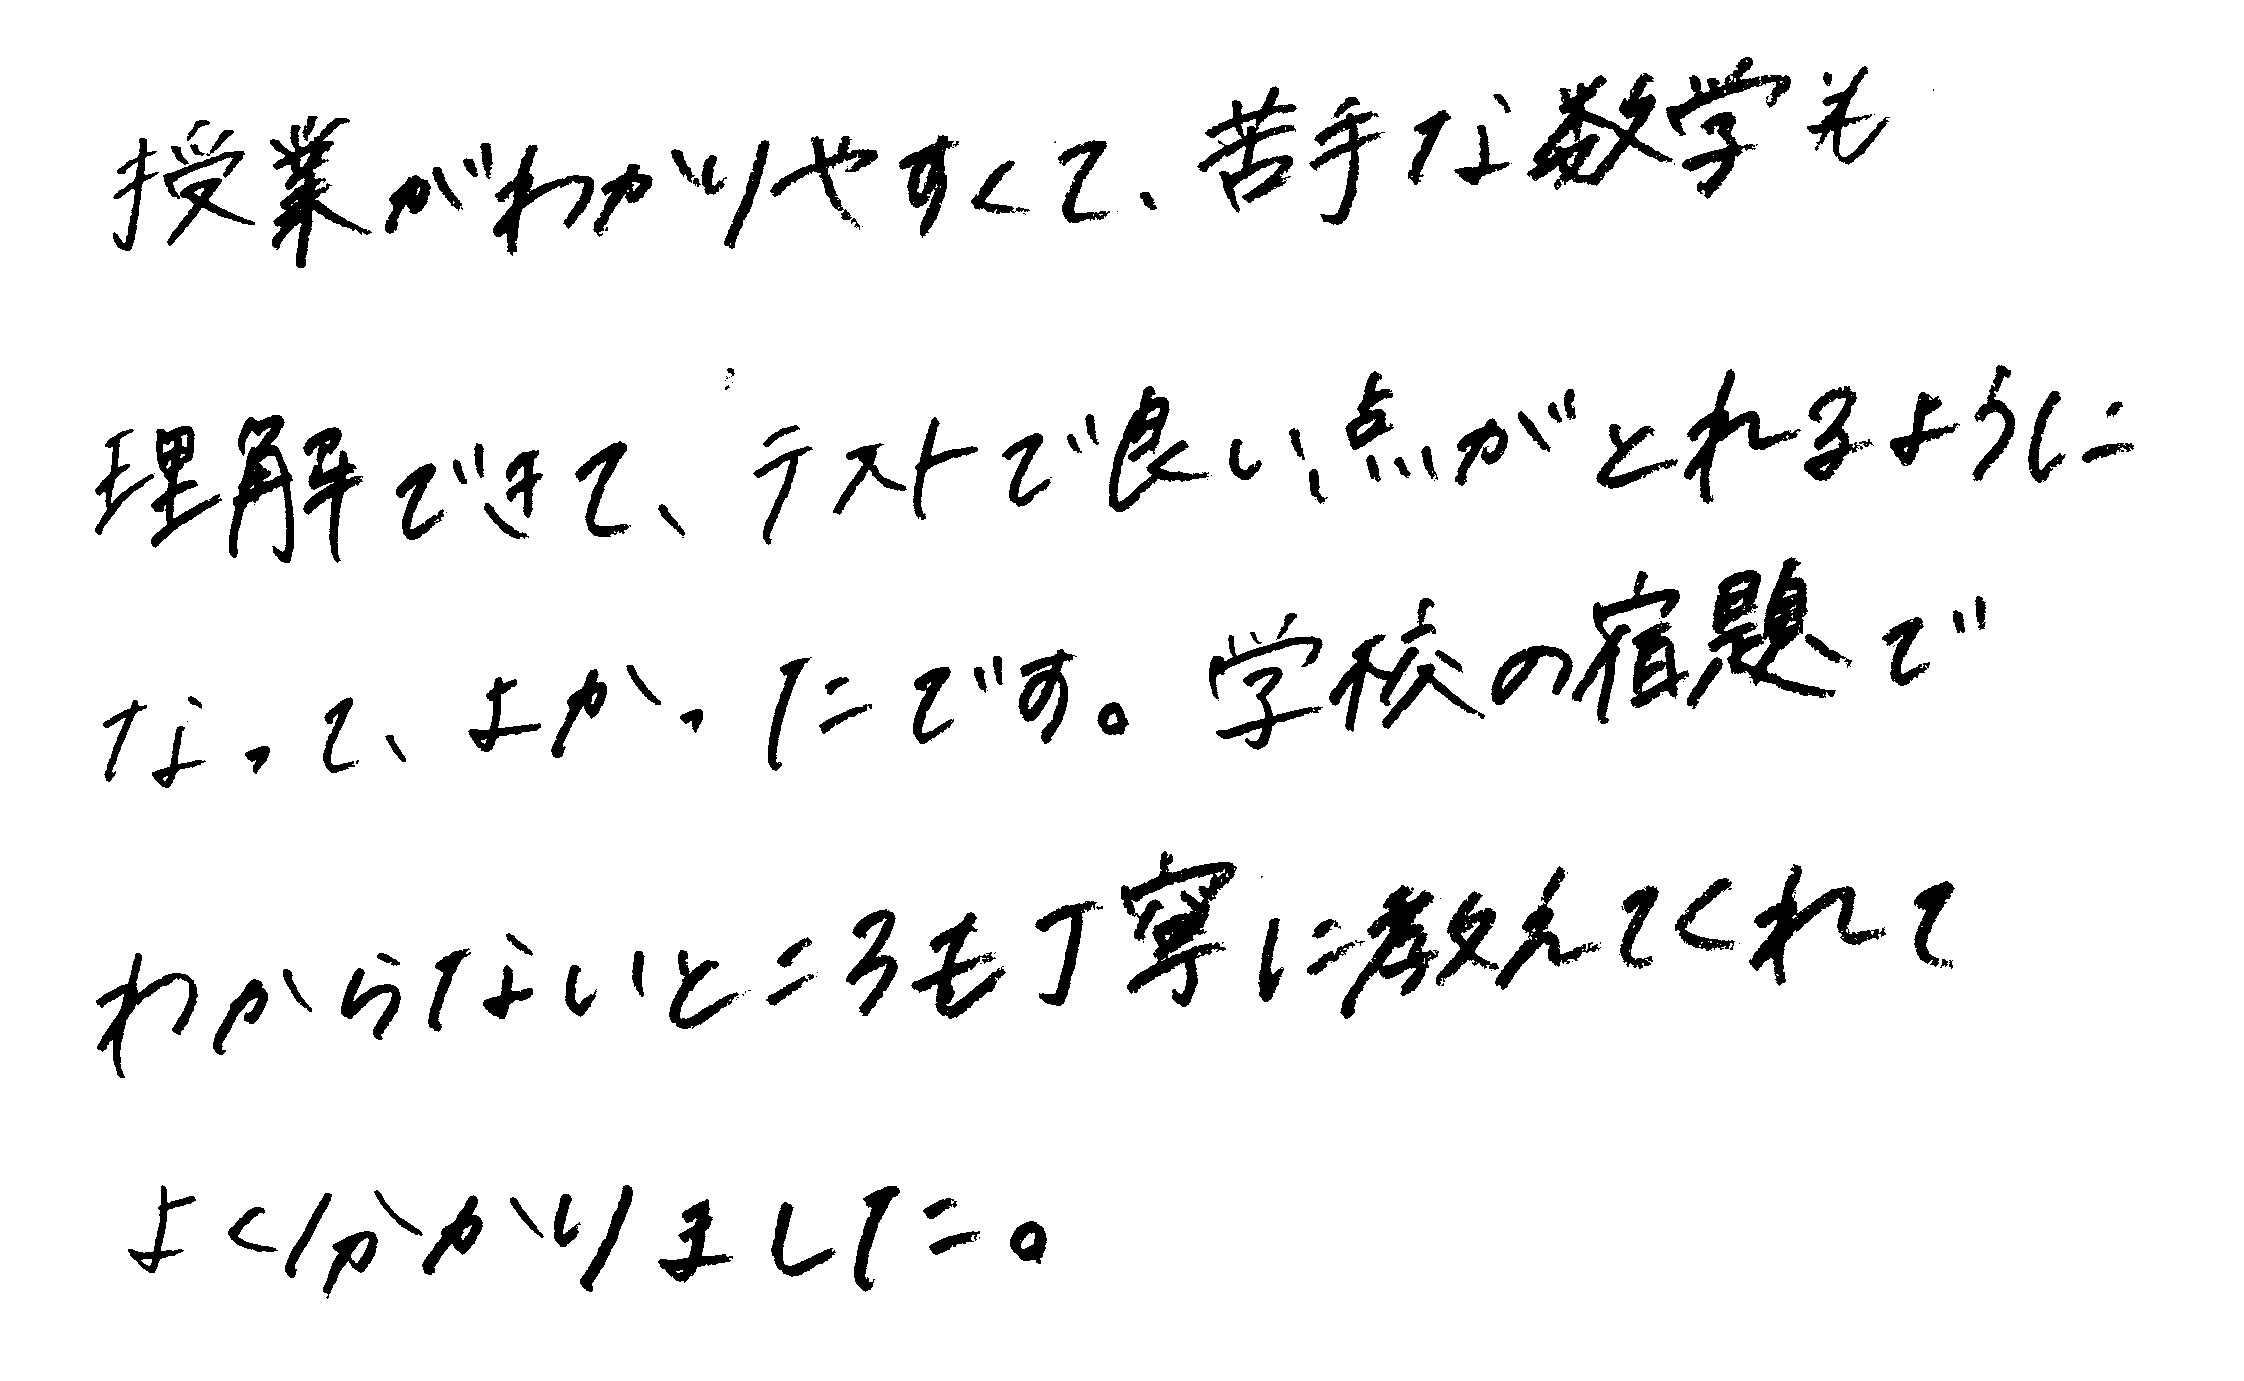 授業がわかりやすくて、苦手な数学も
理解できて、テストで良い点がとれるように
なって、よかったです。学校の宿題で
わからないところも丁寧に教えてくれて
よく分かりました。